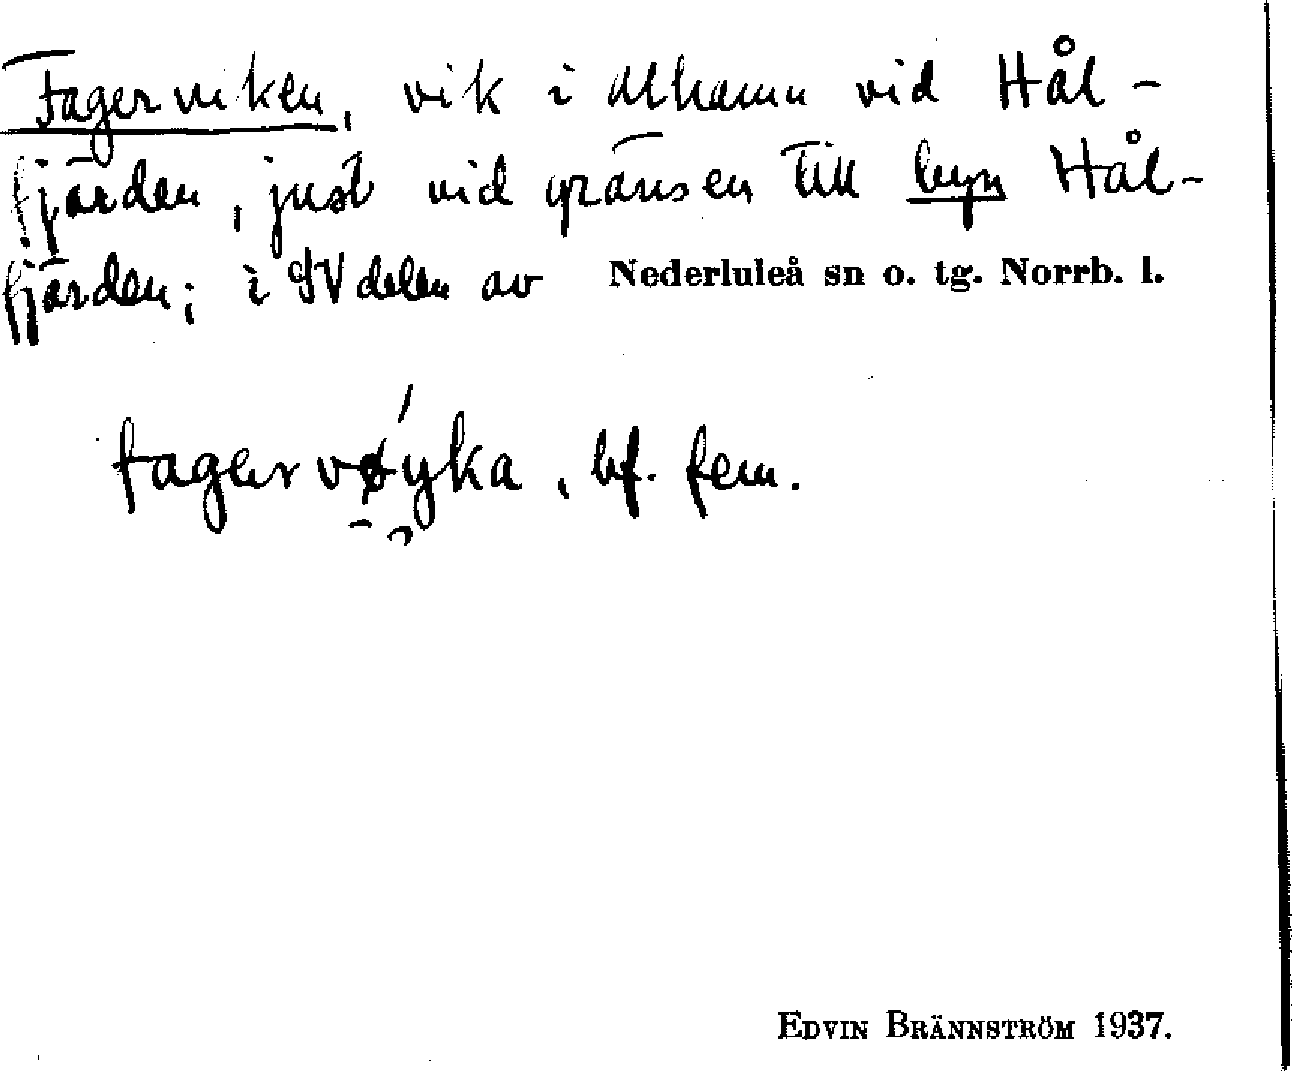 Fagerviken, vik i Alhamn vid Hål-
fjärden, just vid gränsen till byn Hål-
fjärden; i SV delen av Nederluleå sn o. tg. Norrb. l.
fagervøyka, bf. fem.
EDVIN BRÄNNSTRÖM 1937.